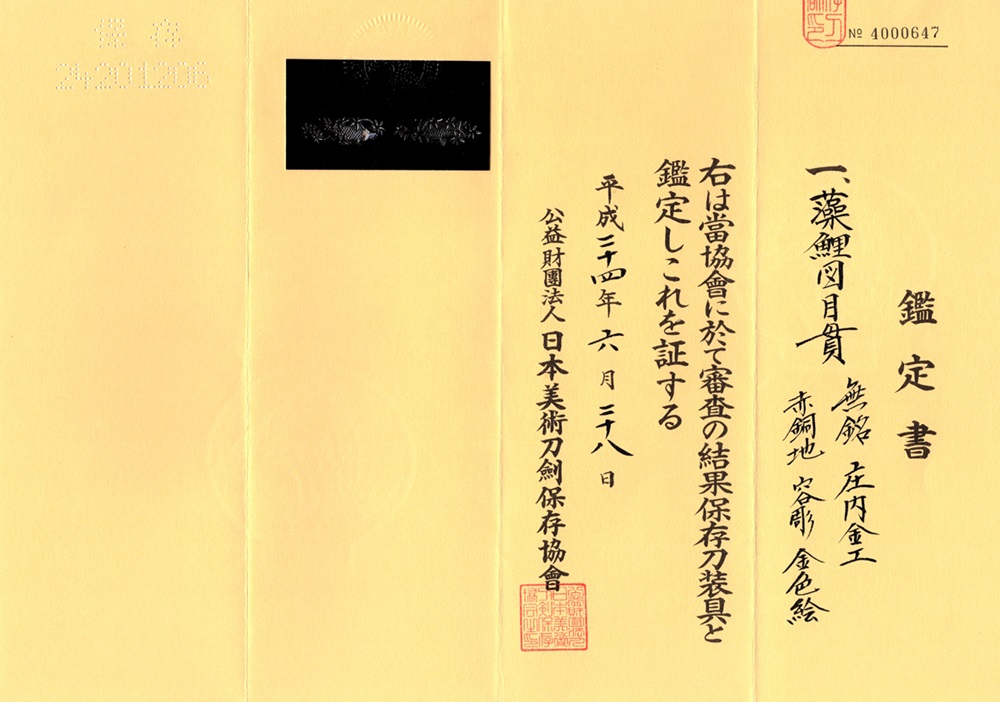 № 4000647
鑑定書
一、藻鯉図目貫
無銘 庄内金工
赤銅地 容彫 金色絵
右は當協會に於て審査の結果保存刀装具と
鑑定しこれを証する
平成二十四年六月二十八日
公益財團法人 日本美術刀劍保存協會
保存
24201206